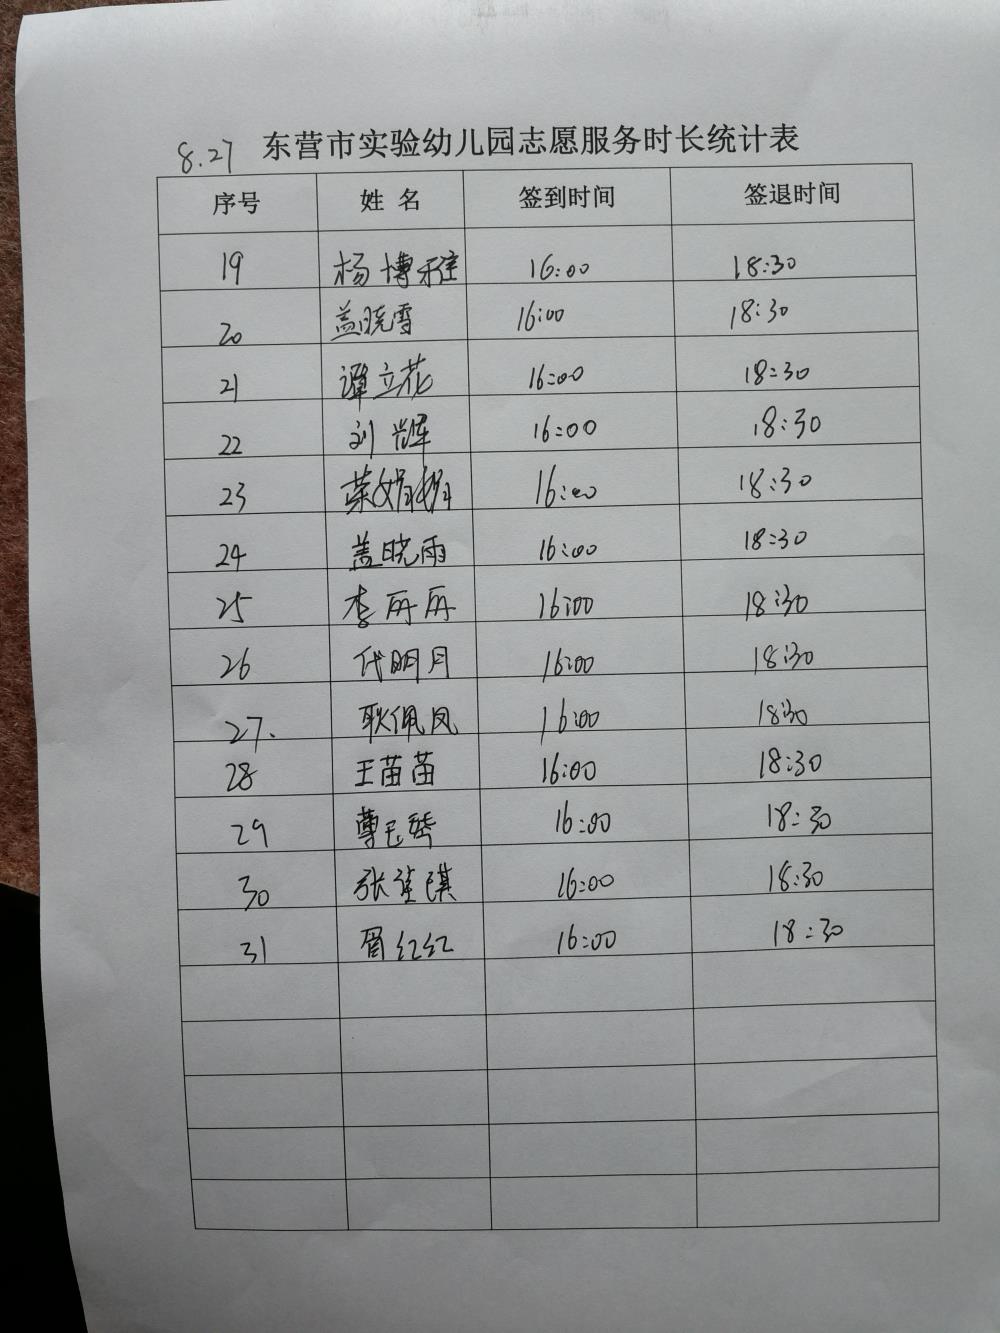 8.27 东营市实验幼儿园志愿服务时长统计表
序号 姓 名 签到时间 签退时间
19 杨博雅 16:00 18:30
20 盖晓雪 16:00 18:30
21 谭立花 16:00 18:30
22 刘辉 16:00 18:30
23 16:00 18:30
24 盖晓雨 16:00 18:30
25 李丽丽 16:00 18:30
26 代明月 16:00 18:30
27. 耿佩凤 16:00 18:30
28 王苗苗 16:00 18:30
29 16:00 18:30
30 16:00 18:30
31 胥红红 16:00 18:30